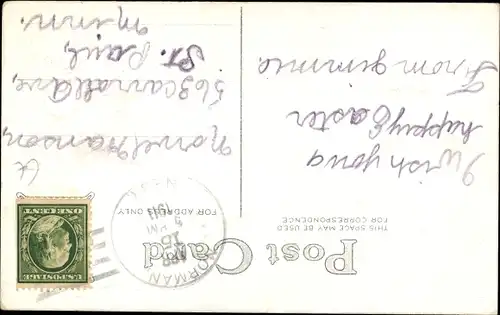 Post Card
THIS SPACE MAY BE USED
FOR CORRESPONDENCE
FOR ADDRESS ONLY
NORMAN
APR
15
PM
1911
U.S. POSTAGE
ONE CENT
I wish you a
happy Easter
From gimmie
Norvel Hanson,
563 carroll Ave,
St. Paul,
Minn.